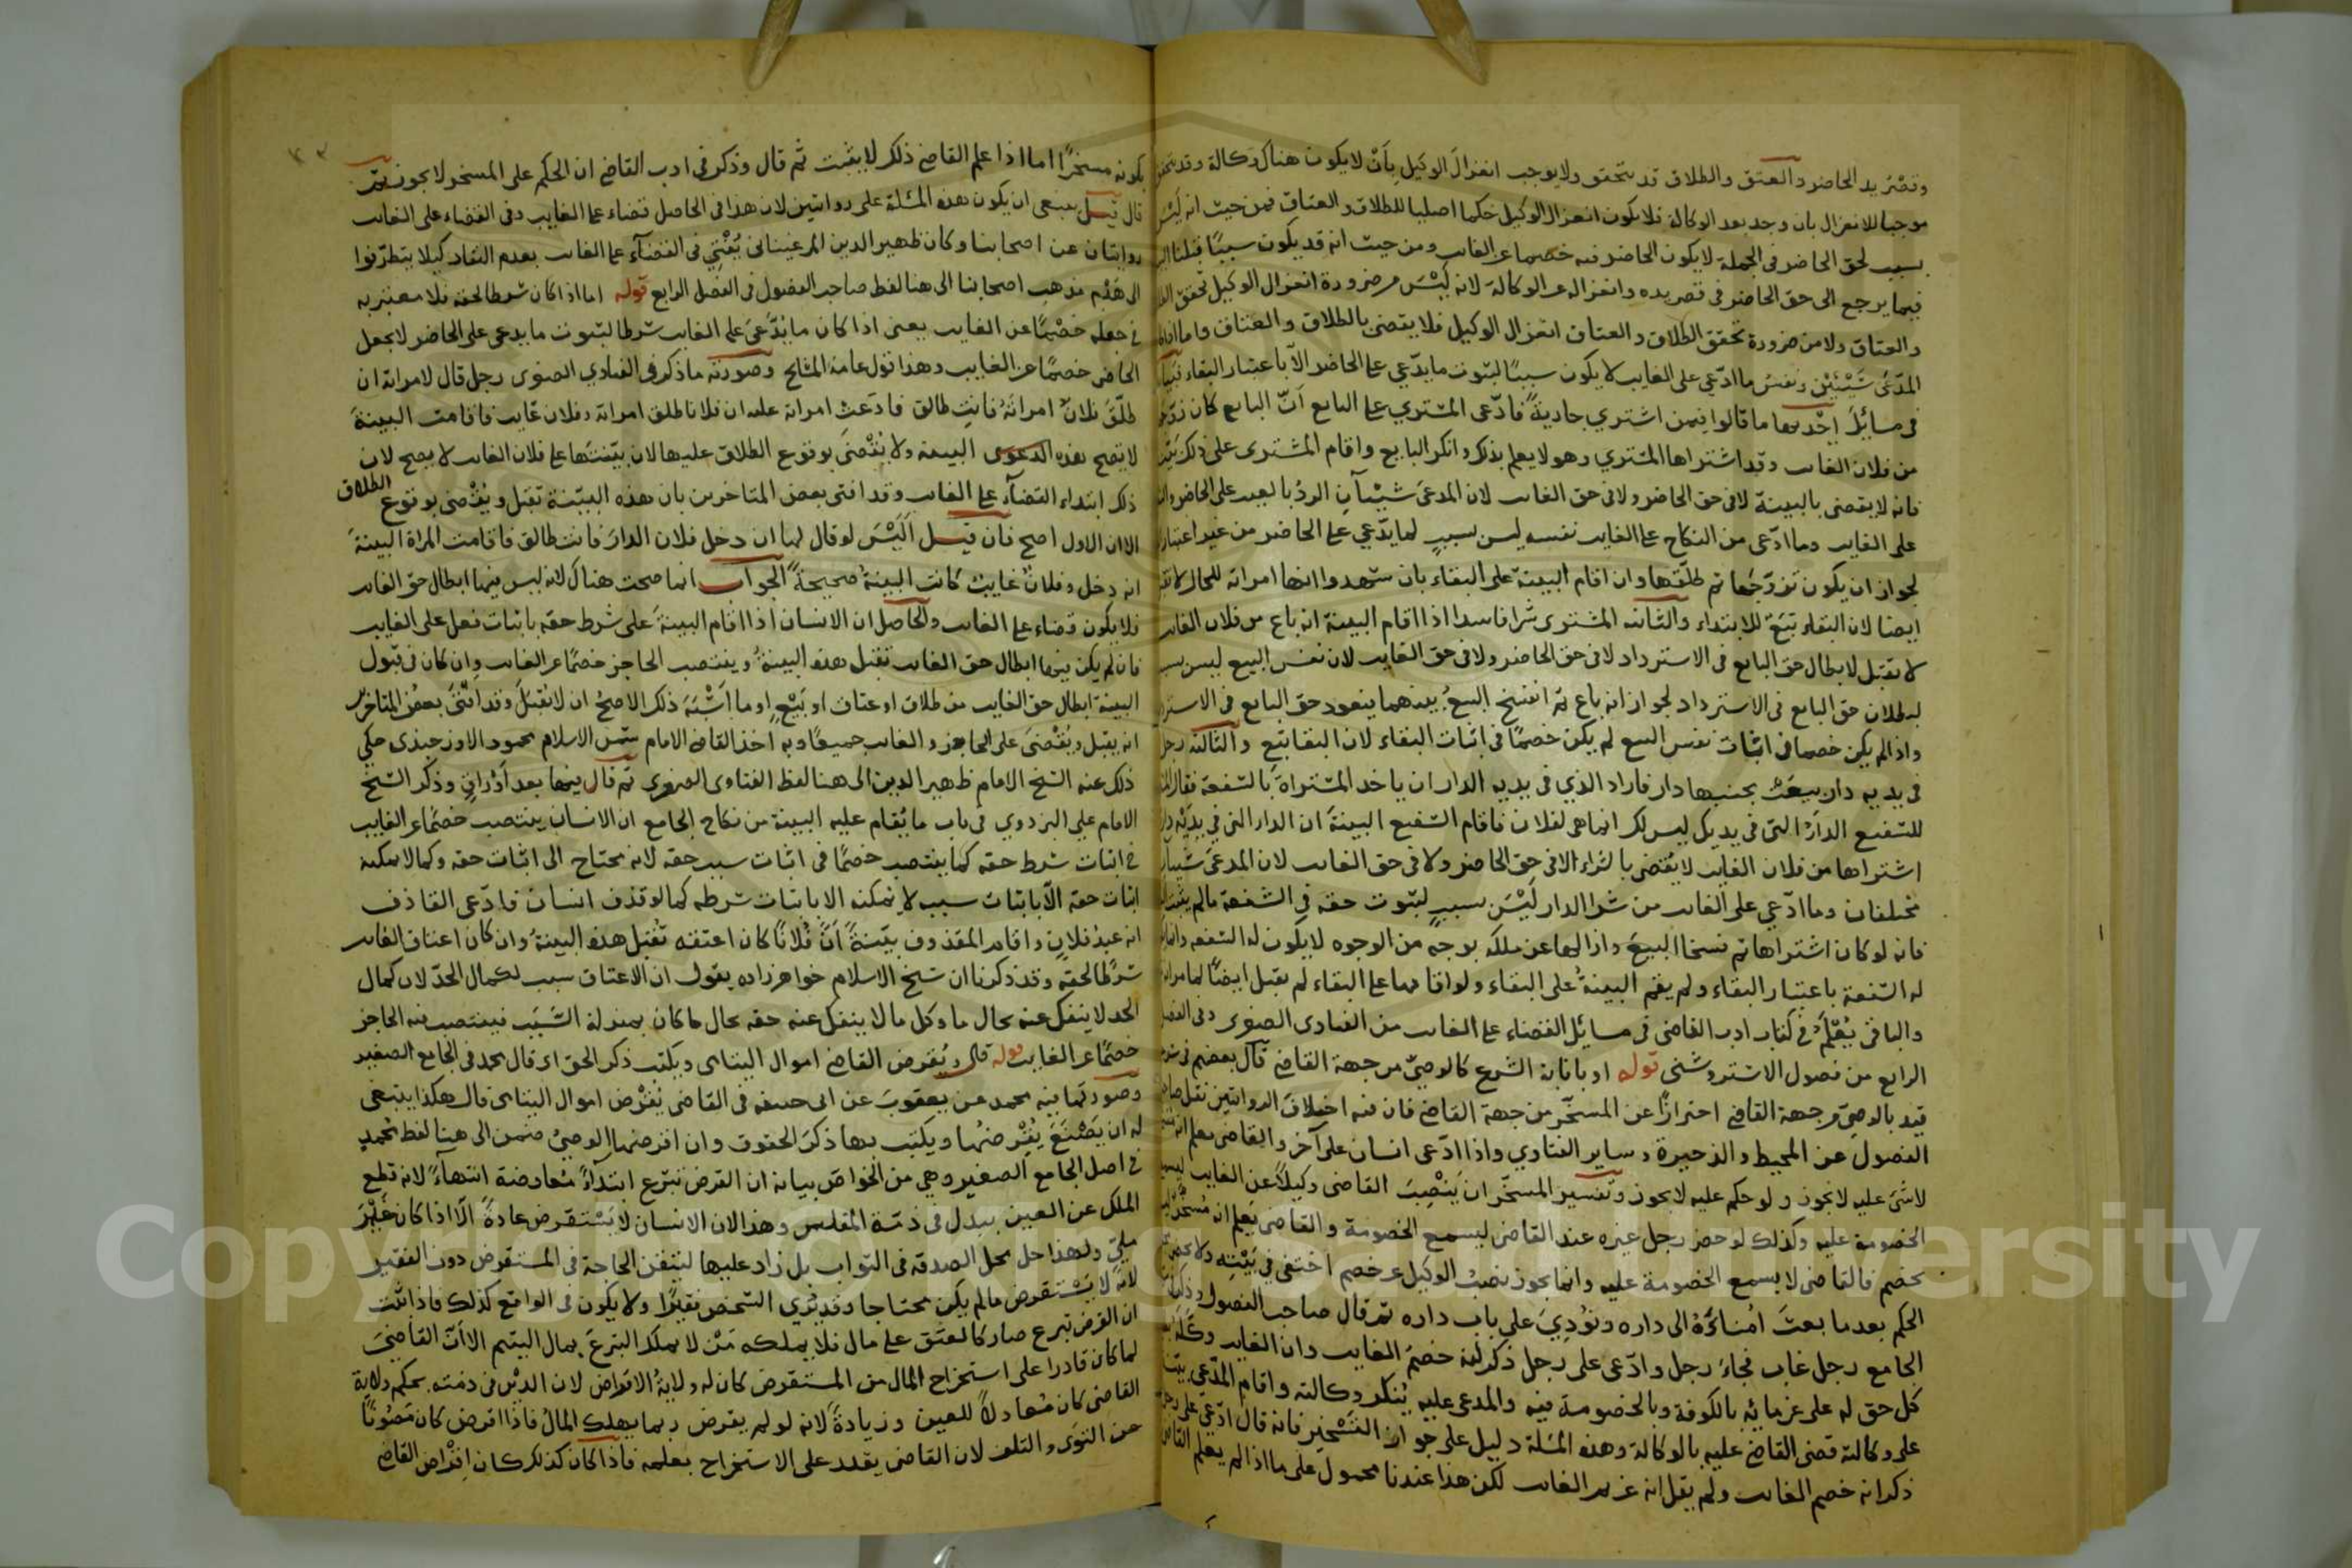 وقصر يد الحاضر والعتق والطلاق قد يتحقق ولا يوجب انعزال الوكيل بأن لا يكون هناك وكالة وقد يتحقق
موجبا للانعزال بان وجد بعد الوكالة فلا يكون انعزال الوكيل حكما اصليا للطلاق والعتاق فمن حيث انه ليس
بسبب لحق الحاضر في الجملة لا يكون الحاضر فيه خصما عن الغايب ومن حيث انه قد يكون سببًا قبلنا البينة
فيما يرجع الى حق الحاضر في قصر يده وانعزاله عن الوكالة لانه ليس من ضرورة انعزال الوكيل تحقق الطلاق
والعتاق ولا من ضرورة تحقق الطلاق والعتاق انعزال الوكيل فلا يقضى بالطلاق والعتاق واما اذا كان
المدّعى شَيْئَيْن ونفس ما ادّعي على الغايب لا يكون سببًا لثبوت ما يدّعي على الحاضر الا باعتبار البقاء
في مسائِلَ اِحْديها ما قالوا فيمن اشتري جارية فادّعى المشتري على البايع اَنّ البايع كان زوّجها
من فلان الغايب وقد اشتراها المشتري وهو لا يعلم بذلك وانكر البايع واقام المشترى على ذلك بيّنة
فانه لا يقضى بالبينة لا في حق الحاضر ولا في حق الغايب لان المدعَى شيْئان الردّ بالعيب على الحاضر والنكاح
على الغايب وما ادّعى من النكاح على الغايب نفسه ليس بسببٍ لما يدّعي على الحاضر من غير اعتبار
لجواز ان يكون تزوّجها ثم طلّقها وان اقام البينة على البقاء بان شهدوا انها امراته للحال لا تقبل
ايضا لان البقاء تبَعٌ للابتداء والثانية المشترى شرا فاسدا اذا اقام البينة انه باع من فلان الغايب
لا يقبل لابطال حق البايع في الاسترداد لا في حق الحاضر ولا في حق الغايب لان نفس البيع ليس بسبب
لبطلان حق البايع في الاسترداد لجواز انه باع ثم انفسخ البيعُ بينهما فيعود حق البايع في الاسترداد
واذا لم يكن خصما في اثبات نفس البيع لم يكن خصمًا في اثبات البقاء لان البقا تبع والثالثة رجل
في يديه دار بيعَتْ بجنبها دار فاراد الذي في يديه الدار ان ياخذ المشتراة بالشفعة فقال المشتري
للشفيع الدارُ التى في يديك ليس لك انما هي لفلان فاقام الشفيع البينةَ ان الدار التي في يديه دار
اشتراها من فلان الغايب لا يُقضى بالشراء لا في حق الحاضر ولا في حق الغايب لان المدعَى شيئان
مختلفان وما ادّعي على الغايب من شرا الدار ليْسَ بسببٍ لثبوت حقه في الشفعة ما لم يثبت
فانه لو كان اشتراها ثم نسخا البيعَ وازالها عن ملكه بوجهٍ من الوجوه لا يكون له الشفعة وانما
له الشفعة باعتبار البقاء ولم يقم البينةُ على البقاء ولو اقامها على البقاء لم يقبل ايضًا لما مر
والباقى يُعْلَمُ في كتاب ادب القاضى في مسائل القضاء على الغايب من الفتاوى الصغرى وفي الفصل
الرابع من فصول الاستروشنى قوله او بانابة الشرع كالوصيّ من جهة القاضي قال بعضهم في
قيد بالوصيّ من جهة القاضي احترازًا عن المسخّر من جهة القاضي فان فيه اختلافَ الروايتين نقل صاحب
الفصول عن المحيط والذخيرة وساير الفتاوي واذا ادّعى انسان على آخر والقاضى يعلم انه
لاشىَ عليه لا يجوز ولو حكم عليه لا يجوز وتفسير المسخّر ان يَنْصِبَ القاضى وكيلاً عن الغايب ليسمع
الخصومة عليه وكذلك لو حضر رجل غيره عند القاضى ليسمع الخصومة و القاضى يَعلم انه مُسَخّر
بخصم فالقاضى لا يسمع الخصومة عليه وانما يجوز نصبُ الوكيل عن خصم اختفى في بَيْتِه ولا يحضر
الحكم بعد ما بعثَ اُمناءَهُ الى داره ونُودِيَ على باب داره ثم قال صاحب الفصول وذكر في
الجامع رجل غاب فجاءَ رجل وادّعى على رجل ذكر انه خصمُ الغايب وان الغايب وكّله
كل حق له على غرمائه بالكوفة وبالخصومة فيه والمدعى عليه يُنكر وكالته واقام المدّعى بيّنة
على وكالته قضى القاضي عليه بالوكالة وهذه المسئلة دليل على جواز التَسْخير فانه قال ادّعى على رجل
ذكر انه خصم الغايب ولم يقل انه غريم الغايب لكن هذا عندنا محمول على ما اذا لم يعلم القاضى
بكونه مسخّرًا اما اذا علم القاضي ذلك لا يثبت ثم قال وذكر في ادب القاضي ان الحكم على المسخر لا يجوز ثم
قال قيل ينبغى ان يكون هذه المسئلة على روايتين لان هذا في الحاصل قضاء على الغايب وفي القضاء على الغايب
روايتان عن اصحابنا وكان ظهير الدين المرغيناني يُفْتِي في القضاء على الغايب بعدم النفاذ كيلا يتطرّقوا
الى هَدْم مذهب اصحابنا الى هنا لفظ صاحب الفصول في الفصل الرابع قوله اما اذا كان شرطا لحقه فلا معتبر به
في جعله خصْمًا عن الغايب يعنى اذا كان ما يُدّعَى على الغايب شرطا لثبوت ما يدعى على الحاضر لا يجعل
الحاضر خصمًا عن الغايب وهذا قول عامة المشايخ وصورته ما ذكر في الفتاوي الصغرى رجل قال لامراته ان
طلّقَ فلانٌ امراتَهُ فانتِ طالق فادّعَتْ امراته عليه ان فلانا طلق امراته وفلان غايب فاقامت البينةَ
لا تصح هذه الدعوى البينة ولا يُقْضَى بوقوع الطلاق عليها لان بيّنتَها على فلان الغايب لا يصح لان
ذلك ابتداء القضآء على الغايب وقد افتى بعض المتاخرين بان هذه البيّنة تقبل ويُقْضى بوقوع الطلاق
الا ان الاول اصح فان قيل اَلَيْسَ لو قال لها ان دخل فلان الدارَ فانت طالق فاقامت المراة البينةَ
انه دخل وفلان غايبٌ كانت البينةُ صحيحةً الجواب انما صحت هناك لانه ليس فيها ابطال حق الغايب
فلا يكون قضاء على الغايب والحاصل ان الانسان اذا اقام البينةَ على شرط حقه باثبات فعل على الغايب
فان لم يكن فيها ابطال حق الغايب تقبل هذه البينةُ وينتصب الحاضر خصمًا عن الغايب وان كان في قبول
البينة ابطال حق الغايب من طلاق او عتاق او بَيْعٍ او ما اَشْبَهَ ذلك الاصحُّ ان لا تقبلَ وقد افتَى بعضُ المتاخرين
انه يقبل ويُقْضَى على الحاضر والغايب جميعًا وبه اخذ القاضي الامام شمس الاسلام محمود الاوزجندى حكي
ذلك عنه الشيخ الامام ظهير الدين الى هنا لفظ الفتاوى الصغرى ثم قال فيها بعد اَوْراقٍ وذكر الشيخ
الامام علي البزدوي في باب ما يُقام عليه البينة من نكاح الجامع ان الانسان ينتصب خصمًا عن الغايب
في اثبات شرط حقه كما ينتصب خصمًا في اثبات سبب حقه لانه يحتاج الى اثبات حقه وكما لا يمكنه
اثبات حقه الّا باثبات سببه لا يُمكنه الا باثبات شرطه كما لو قذف انسان فادّعى القاذف
انه عبدُ فلانٍ واقام المقذوف بيّنةً اَنّ فُلانًا كان اعتقه تُقبَل هذه البينةُ وان كان اعتاق الغايب
شرطًا لحقه وقد ذكرنا ان شيخ الاسلام خواهر زاده يقول ان الاعتاق سبب لكمال الحدّ لان كمال
الحد لا ينفك عنه بحال ما وكل ما لا ينفك عنه حقه بحال ما كان بمنزلة السَّبَب فينتصب فيه الحاضر
خصمًا عن الغايب قوله قال ويُقرض القاضي اموال اليتامى ويكتب ذكر الحق اى قال محمد في الجامع الصغير
وصورتها فيه محمد عن يعقوبَ عن ابى حنيفه في القاضى يُقْرِض اموال اليتامى قال هكذا ينبغى
له ان يَصْنَعَ يُقْرِضُها ويكتب بها ذكرَ الحقوق وان اقرضها الوصيُّ ضمن الى هنا لفظ محمدٍ
في اصل الجامع الصغير وهي من الخواصّ بيانه ان القرض تبرّع ابتدآءً مُعاوضة انتهآءً لانه قطع
الملك عن العين ببدل في ذمّة المفلس وهذا لان الانسان لا يَسْتقرض عادةً الّا اذا كان غَيْرَ
مليّ ولهذا حل محل الصدقة في الثواب بل زاد عليها لتيقن الحاجة في المستقرض دون الفقير
لانه لا يَسْتقرض ما لم يكن محتاجا وقد يُرَى الشخص فقيرًا ولا يكون في الواقع كذلك فاذا ثبت
ان القرض تبرع صار كالعتق على مال فلا يملكه مَنْ لا يملك التبرعَ بمال اليتيم الا اَنّ القاضيَ
لما كان قادرا على استخراج المال من المستقرض كان له ولايةُ الاقراض لان الديْن في ذمّته بحكم ولاية
القاضى كان مُعادلاً للعين وزيادةً لانه لو لم يقرض ربما يهلك المالُ فاذا اقرض كان مَصُونًا
عن التوَى والتلف لان القاضى يقدر على الاستخراج بعلمه فاذا كان كذلك كان اِقْراض القاضي
Copyright © King Saud University